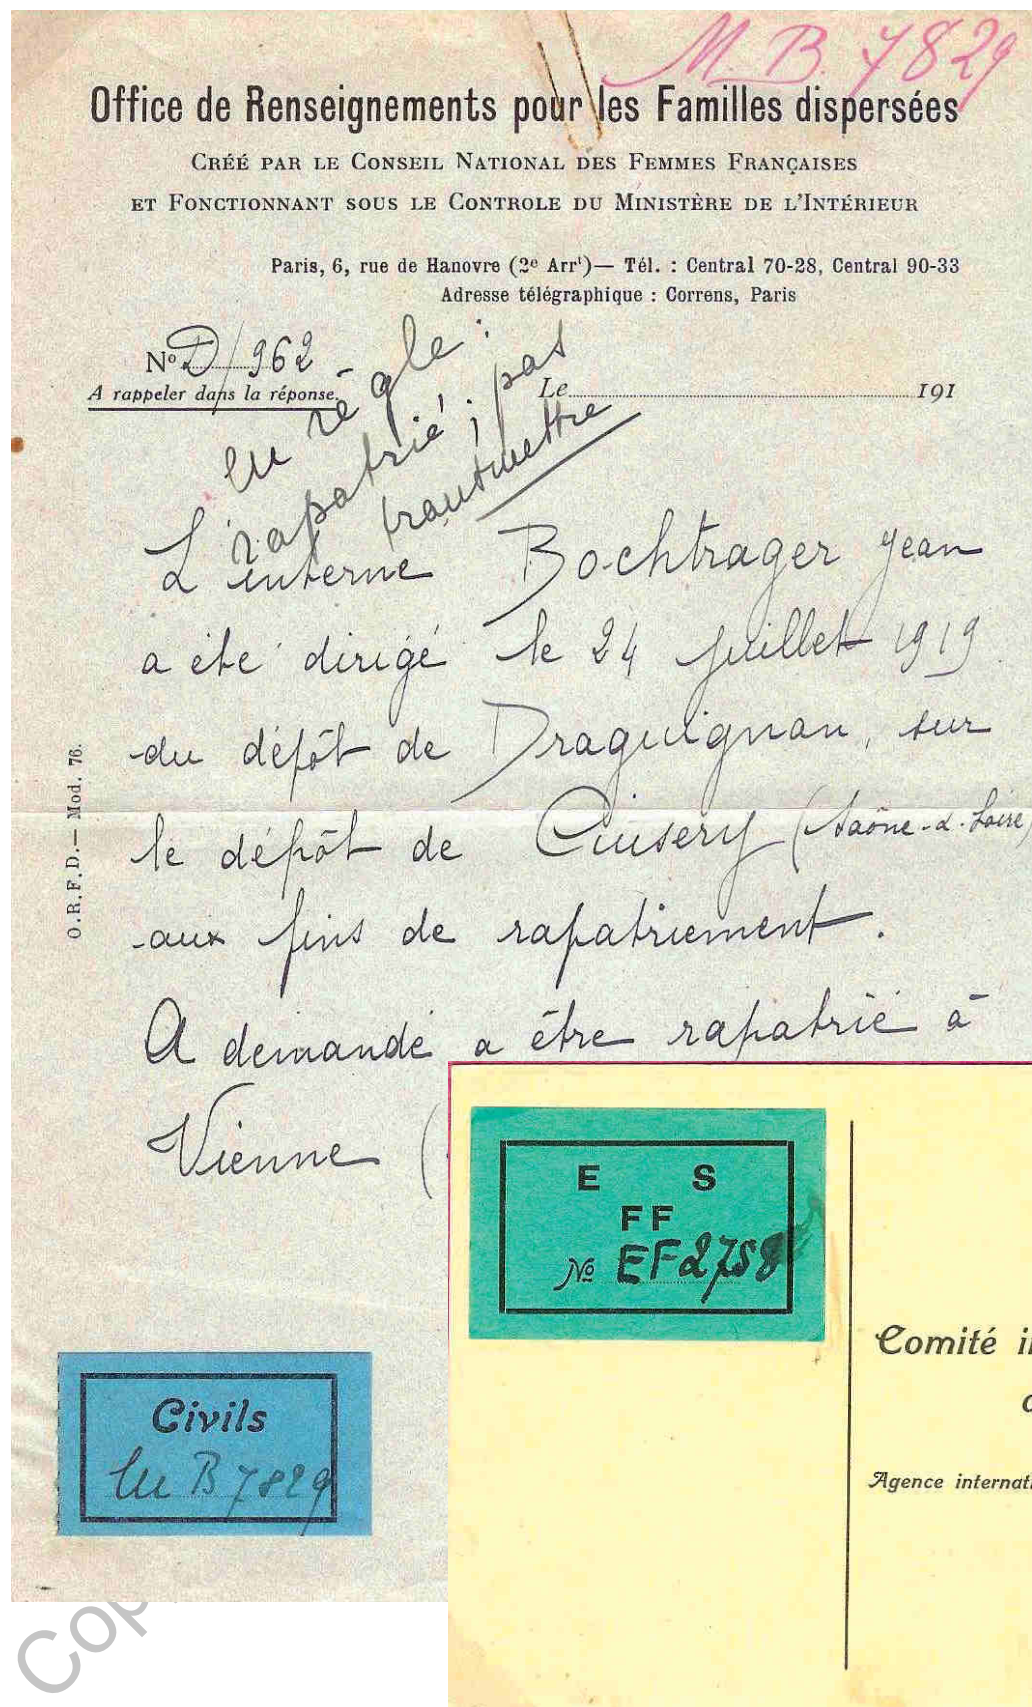 M. B. 7829
Office de Renseignements pour les Familles dispersées
Créé par le Conseil National des Femmes Françaises
et Fonctionnant sous le Controle du Ministère de l'Intérieur
Paris, 6, rue de Hanovre (2e Arrt)— Tél. : Central 70-28, Central 90-33
Adresse télégraphique : Correns, Paris
No D/962
A rappeler dans la réponse.
Le 191
en règle :
rapatrié ; pas
transmettre
L'interne Bochtrager Jean
a été dirigé le 24 juillet 1919
du dépôt de Draguignan, sur
le dépôt de Cuisery (Saône-&-Loire)
aux fins de rapatriement.
A demandé a être rapatrié à
Vienne (
O.R.F.D.— Mod. 76.
E S
FF
No EF2758
Comité i
Agence internat
Civils
M B 7829
Cop